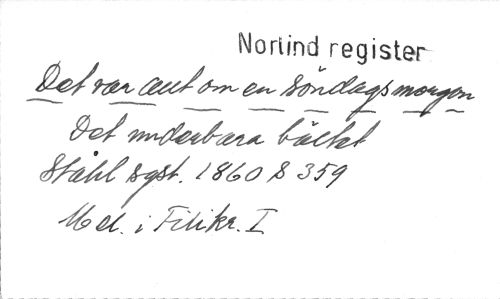 Norlind register
Det var allt om en söndagsmorgon
Det underbara bältet
Ståhl sgst. 1860 S 359
Mel. i Filikr. I